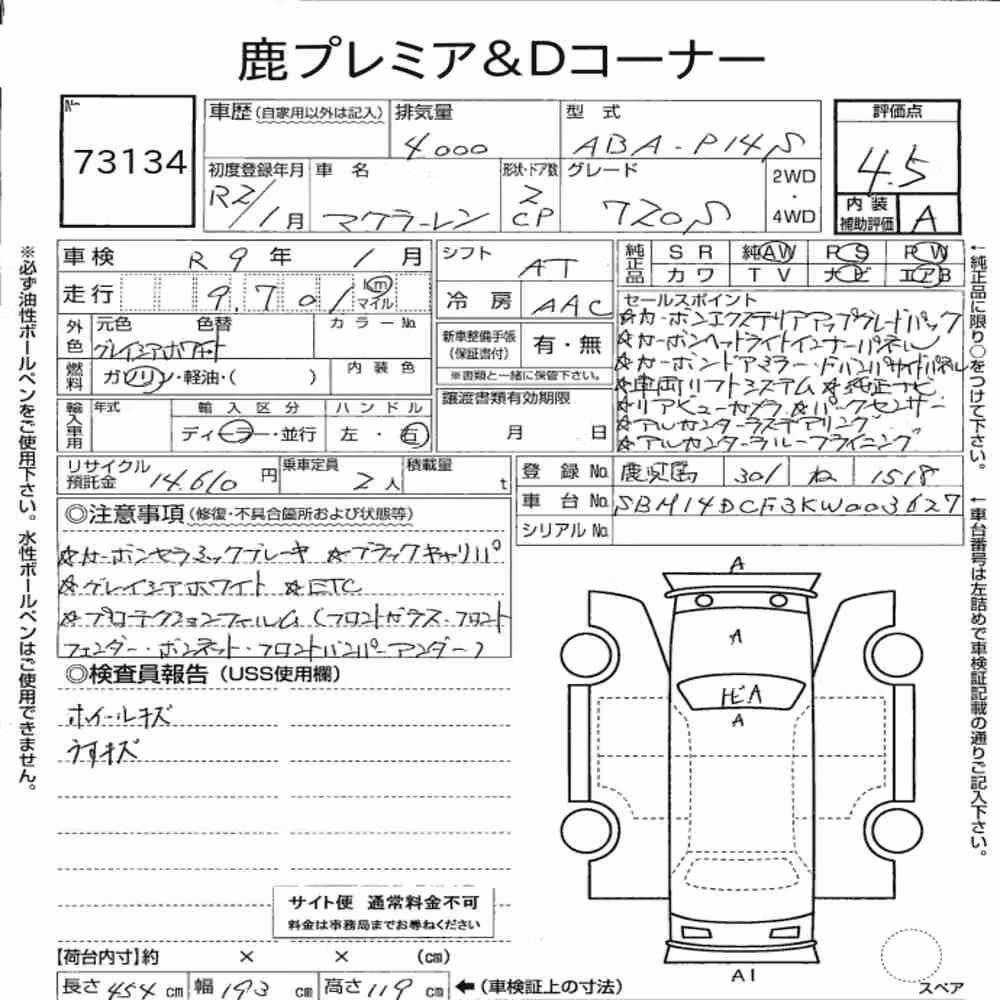 鹿プレミア&Dコーナー
No.
73134
車歴(自家用以外は記入)
排気量
4000
型式
ABA-P14S
評価点
4.5
初度登録年月
R2/1月
車名
マクラーレン
形状・ドア数
2
CP
グレード
720S
2WD
・
4WD
内装
補助評価
A
車検
R9年1月
走行
9,701
Km
マイル
外色
元色
色替
カラーNo.
グレイシアホワイト
燃料
ガソリン・軽油・( )
内装色
輸入車用
年式
輸入区分
ディーラー・並行
ハンドル
左・右
シフト
AT
冷房
AAC
新車整備手帳
(保証書付)
有・無
※書類と一緒に保管下さい。
譲渡書類有効期限
月 日
純正品
SR
純AW
PS
PW
カワ
TV
ナビ
エアB
セールスポイント
☆カーボンエクステリアアップグレードパック
☆カーボンヘッドライトインナーパネル
☆カーボンドアミラー
☆車両リフトシステム ☆純正ナビ
☆リアビューカメラ ☆パークセンサー
☆アルカンターラステアリング
☆アルカンターラルーフライニング
リサイクル
預託金
14,610円
乗車定員
2人
積載量
t
登録No.
鹿児島 301 ね 1518
車台No.
SBM14DCF3KW003627
シリアルNo.
◎注意事項(修復・不具合箇所および状態等)
☆カーボンセラミックブレーキ ☆ブラックキャリパ
☆グレイシアホワイト ☆ETC
☆プロテクションフィルム(フロントガラス・フロント
フェンダー・ボンネット・フロントバンパーアンダー)
◎検査員報告(USS使用欄)
ホイールキズ
うすキズ
A
A
トビA
A
A1
スペア
サイト便 通常料金不可
料金は事務局までお尋ねください
【荷台内寸】約 × × (cm)
長さ454cm 幅193cm 高さ119cm ←(車検証上の寸法)
※必ず油性ボールペンをご使用下さい。水性ボールペンはご使用できません。
←純正品に限り○をつけて下さい。
←車台番号は左詰めで車検証記載の通りご記入下さい。